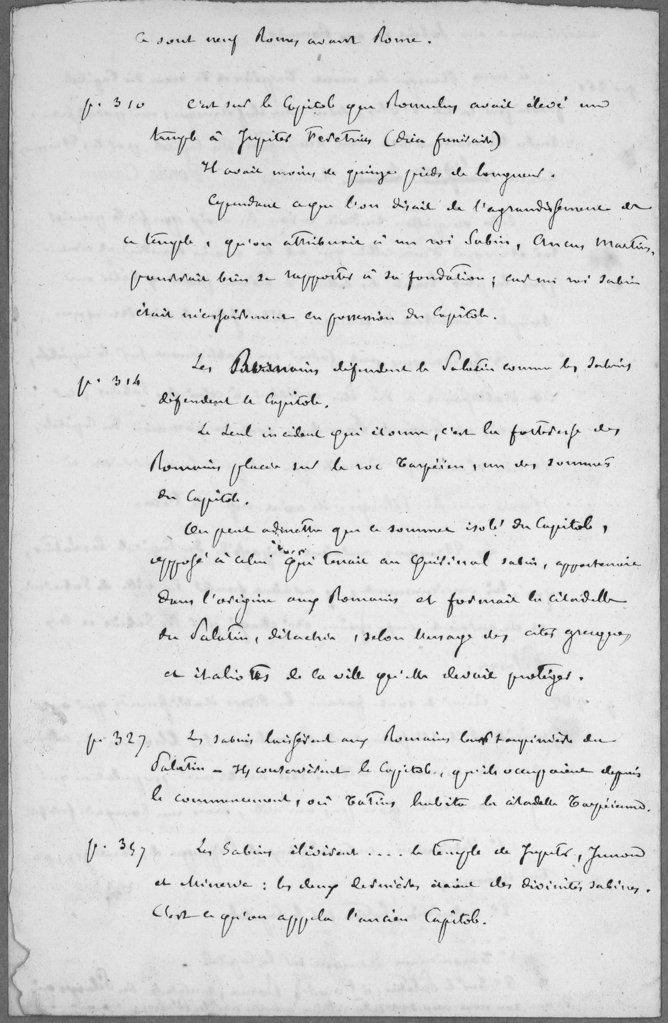 Ce sont neuf Romes avant Rome.
p. 310 C'est sur le Capitole que Romulus avait élevé un
temple à Jupiter Feretrius (dieu funéraire)
Il avait moins de quinze pieds de longueur.
Cependant ce que l'on disait de l'agrandissement de
ce temple, qu'on attribuait à un roi Sabin, Ancus Martius,
pourrait bien se rapporter à sa fondation; car un roi sabin
était nécessairement en possession du Capitole.
p. 314 Les Romains défendent le Palatin comme les Sabins
défendent le Capitole.
Le seul incident qui étonne, c'est la forteresse des
Romains placée sur le roc Tarpéien, un des sommets
du Capitole.
On peut admettre que ce sommet isolé du Capitole,
opposé à celui qui tenait au Quirinal sabin, appartenait
dans l'origine aux Romains et formait la citadelle
du Palatin, détachée, selon l'usage des cités grecques
et italiotes de la ville qu'elle devait protéger.
p. 327 Les sabins laissèrent aux Romains du
Palatin – Ils conservèrent le Capitole, qu'ils occupaient depuis
le commencement, où Tatius habita la citadelle Tarpéienne.
p. 357 Les Sabins élevèrent .... le temple de Jupiter, Junon
et Minerve : les deux dernières étaient des divinités sabines.
C'est ce qu'on appela l'ancien Capitole.